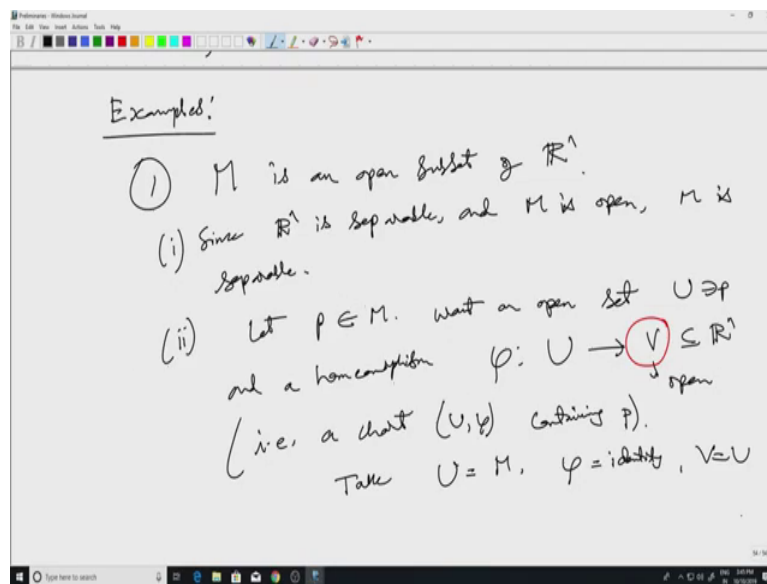 Preliminaries - Windows Journal
File Edit View Insert Actions Tools Help
Examples:
① M is an open subset of ℝⁿ.
(i) Since ℝⁿ is separable, and M is open, M is
separable.
(ii) Let p ∈ M. Want an open set U ∋ p
and a homeomorphism φ: U → V ⊆ ℝⁿ
open
(i.e. a chart (U, φ) containing p).
Take U = M, φ = identity, V = U
Type here to search
ENG 3:45 PM
IN 10/10/2018